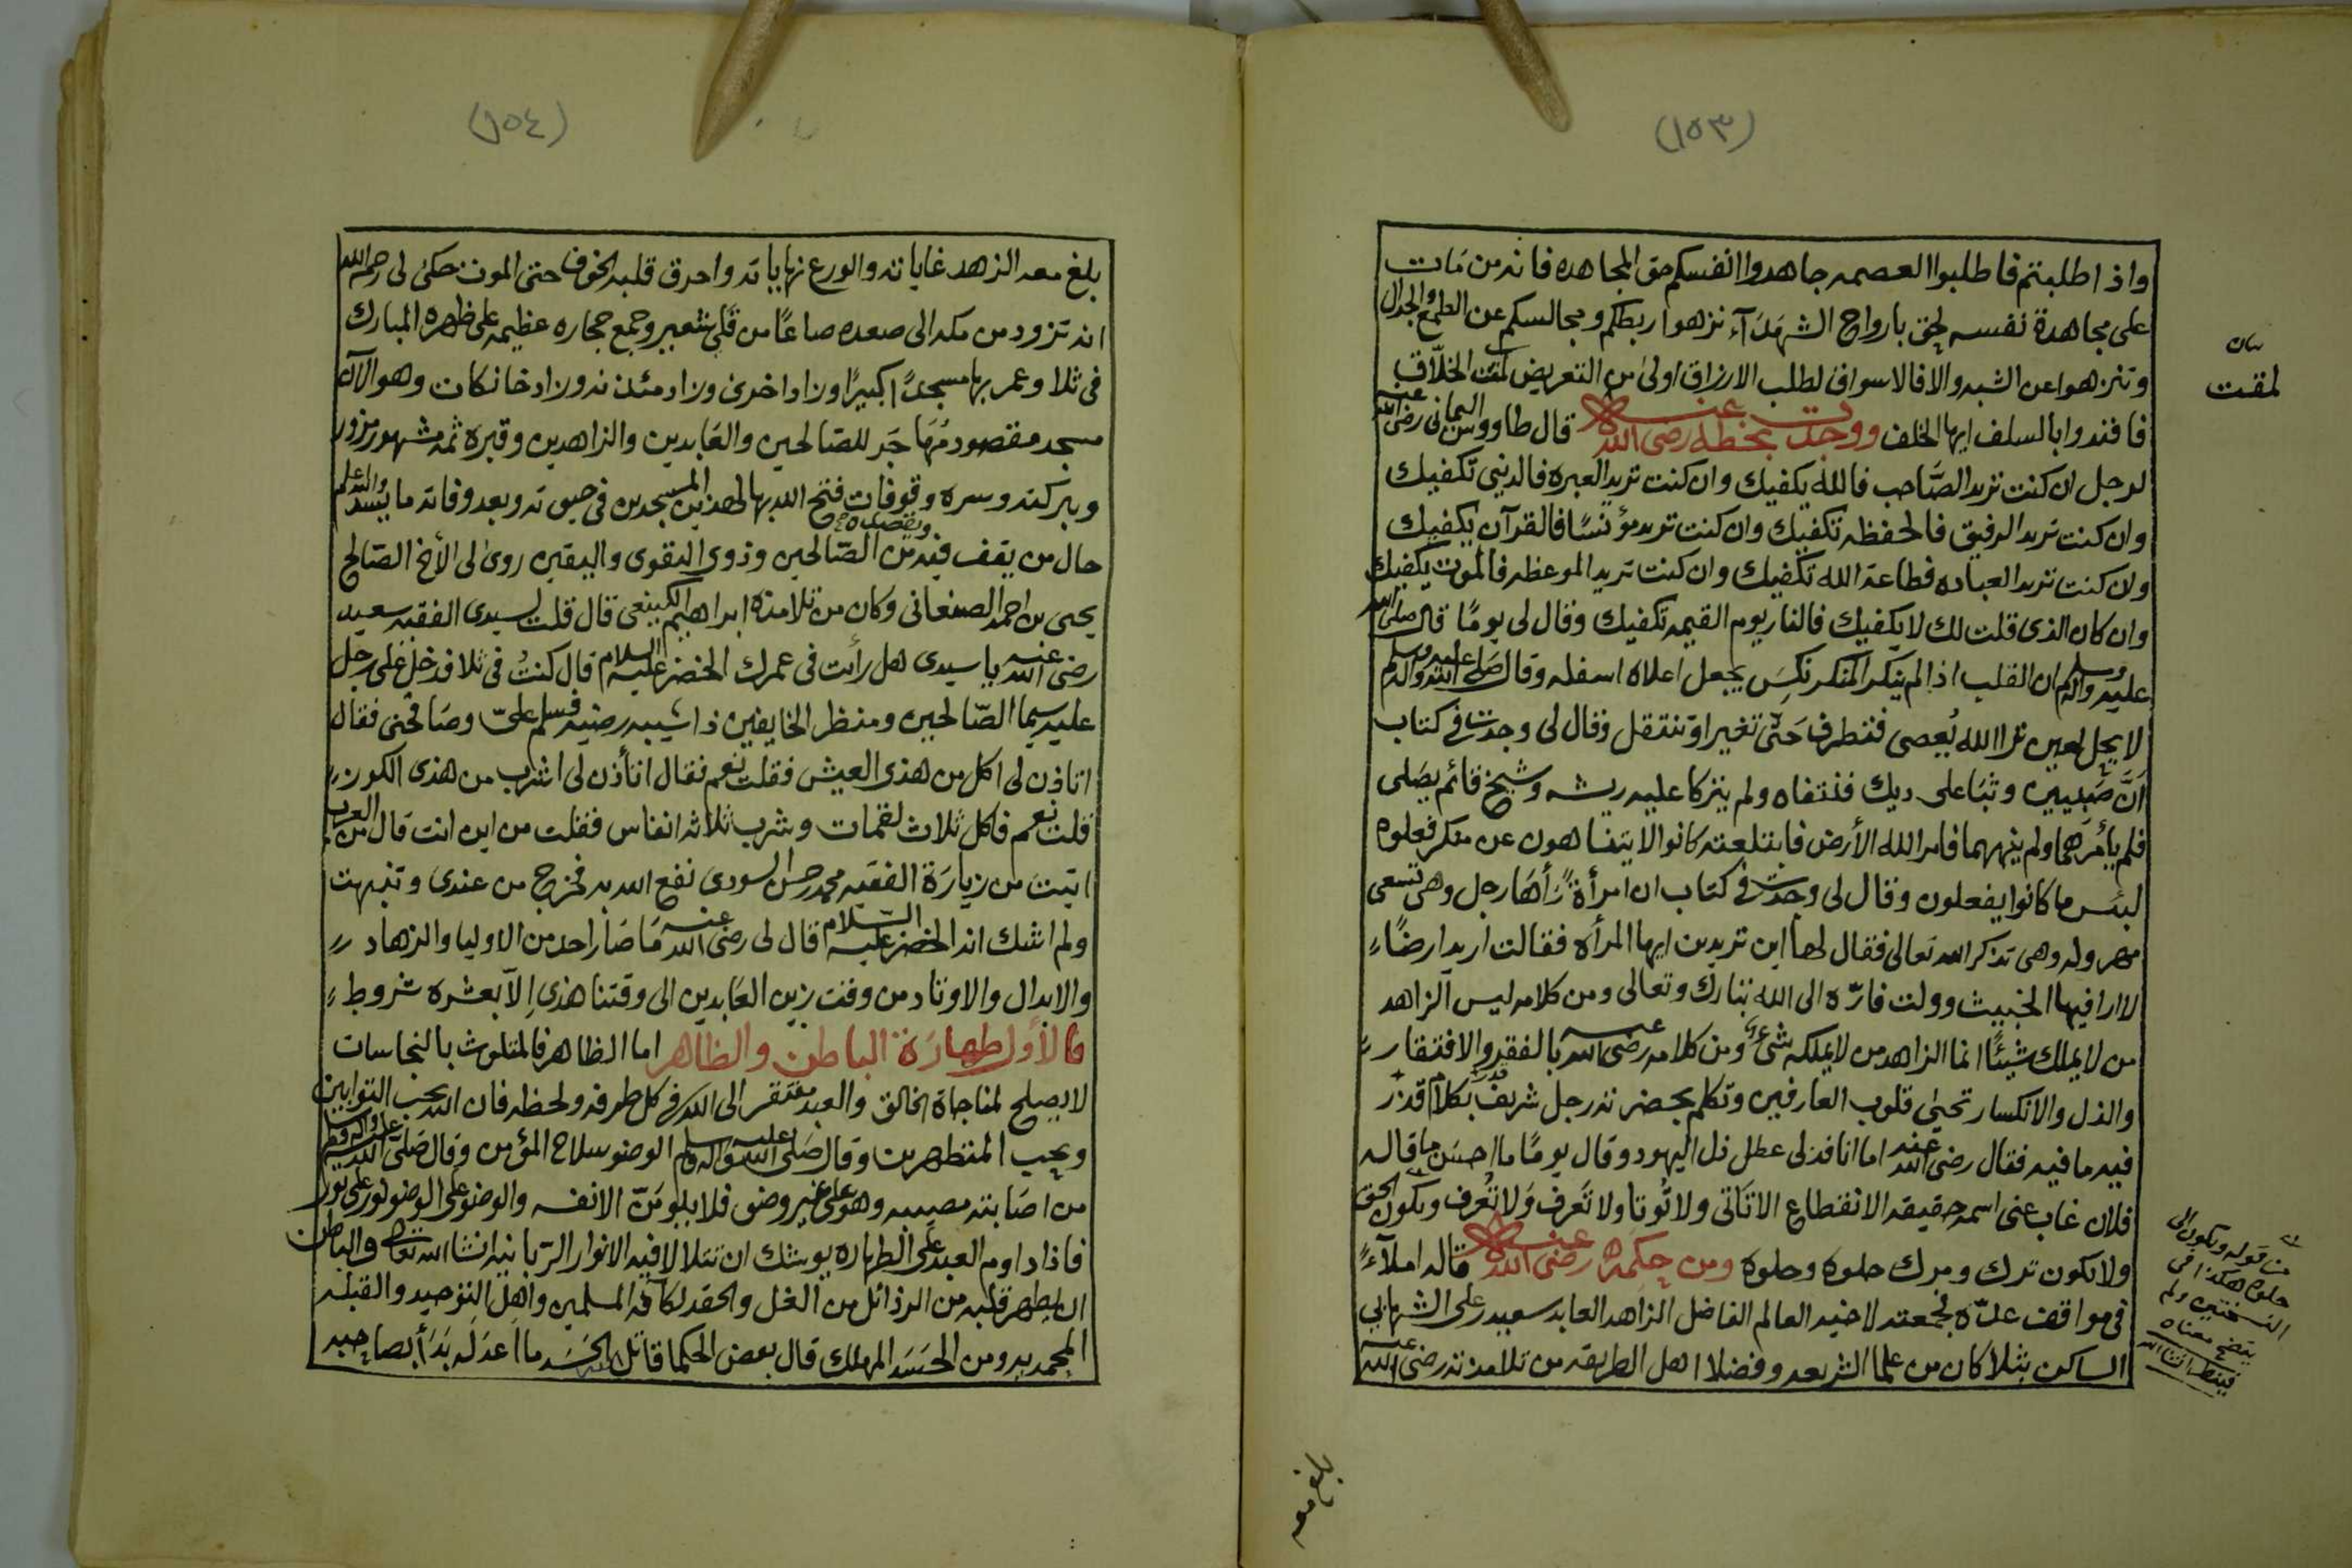 (١٥٣)
واذا طلبتم فاطلبوا العصمه جاهدوا انفسكم حق المجاهده فانه من مَات
على مجاهدة نفسه لحق بارواح الشهَدَآء نزهوا ربطكم ومجالسكم عن الطمع والجدال
وتنزهوا عن الشبه والا فالاسواق لطلب الارزاق اولى من التعريض لمقت الخلّاق
فاقتدوا بالسلف ايها الخلف ووجدت بخطه رضى الله عنه قال طاووس اليمانى رضى الله عنه
لرجل ان كنت تريد الصّاحب فالله يكفيك وان كنت تريد العبره فالدنيى تكفيك
وان كنت تريد الرفيق فالحفظه تكفيك وان كنت تريد مؤنسًا فالقرآن يكفيك
وان كنت تريد العباده فطاعة الله تكفيك وان كنت تريد الموعظه فالموت يكفيك
وان كان الذى قلت لك لا يكفيك فالنار يوم القيمه تكفيك وقال لى يومًا قال صلى الله
عليه وآله وسلم ان القلب اذا لم ينكر المنكر نكس يجعل اعلاه اسفله وقال صلى الله عليه وآله وسلم
لا يحل لعين ترا الله يُعصى فتطرف حَتى تغير او تنتقل وقال لى وجدت فى كتاب
انَّ صَبيين وثبَا على ديك فنتفاه ولم يتركا عليه ريشه وشيخ قائم يصَلى
فلم يأمرهما ولم ينههما فامر الله الأرض فابتلعته كانوا لا يتناهون عن منكر فعلوه
لبئس ما كانوا يفعلون وقال لى وجدت فى كتاب ان امرأةً رَأهَا رجل وهى تسعى
مهروله وهى تذكر الله تعالى فقال لها اين تريدين ايها المرأه فقالت اريد ارضًا
لا ارا فيها الخبيث وولت فارّه الى الله تبارك وتعالى ومن كلامه ليس الزاهد
من لا يملك شيئًا انما الزاهد من لا يملكه شئ ومن كلامه رضى الله عنه بالفقر والافتقار
والذل والانكسار تحيىٰ قلوب العارفين وتكلم بحضرته رجل شريف بكلام قذر
فيه ما فيه فقال رضى الله عنه اما انا فذلى عطل ذل اليهود وقال يومًا ما احسَن ما قاله
فلان غاب عنى اسمه حقيقه الانقطاع الا تَاتى ولا تُوتا ولا تَعرف وَلا تُعرف ويكون الحق
ولا يكون ترك ومرك حلوه وحلوه ومن حِكَمه رضى الله عنه قاله املآءً
فى مواقف عدّه لجمعته لاخيه العالم الفاضل الزاهد العابد سعيد على الشهابي
الساكن بثلا كان من علما الشريعه وفضلا اهل الطريقه من تلامذته رضى الله عنه
بيان
لمقت
من قوله ويكون الى
حلوه هكذا فى
النسختين ولم
يتضح معناه
فينظر انشا الله
بلغ معه
(١٥٤)
بلغ معه الزهد غاياته والورع نهاياته واحرق قلبه الخوف حتى الموت حكى لى رحمه الله
انه تزود من مكه الى صعده صاعًا من قلى شعير وجمع حجاره عظيمه على ظهره المبارك
فى ثلا وعمر بها مسجدًا كبيرًا وزاد اخرى وزاد مئذنه وزاد خانكات وهو الآن
مسجد مقصود مُهَاجَر للصّالحين والعَابدين والزاهدين وقبره ثمه مشهور مزور
وببركته وسره وقوفات فتح الله بها لهذين المسجدين فى حيوته وبعد وفاته ما يسُد والله اعلم
حال من يقف فيه ويقصده من الصّالحين وذوى التقوى واليقين روىٰ لى الأخ الصّالح
يحيى بن احمد الصنعانى وكان من تلامذة ابراهيم الكينعى قال قلت لسيدى الفقيه سعيد
رضى الله عنه يا سيدى هل رأت فى عمرك الخضر عليه السلام قال كنتُ فى ثلا فدخل على رجل
عليه سيما الصّالحين ومنظر الخايفين ذا شيبه رضيه فسلم علىّ وصَافحنى فقال
اتاذن لى اكل من هذى العيش فقلت نعم فقال اتأذن لى اشرب من هذى الكوز
قلت نعم فاكل ثلاث لقمات وشرب ثلاثه انفاس فقلت من اين انت قال من العرب
اتيت من زيارَة الفقيه محمد حسن السودى نفع الله به فخرج من عندى وتنبهت
ولم اشك انه الخضر عليه السلام قال لى رضى الله عنه مَا صَار احد من الاوليا والزهاد
والابدال والاوتاد من وقت زين العَابدين الى وقتنا هذى اِلاّ بعشره شروط
فالأول طهارَة الباطن والظاهر اما الظاهر فالمتلوث بالنجاسات
لا يصلح لمناجاة الخالق والعبد مفتقر الى الله فى كل طرفه ولحظه فان الله يحب التوابين
ويحب المتطهرين وقال صَلى الله عليه وآله وسلم الوضو سلاح المؤمن وقال صَلى الله عليه وآله وسلم
من اصَابته مصيبه وهو على غير وضو فلا يلومَنّ الا نفسه والوضو على الوضو نور على نور
فاذا داوم العبد على الطهاره يوشك ان تتلالا فيه الانوار الرّبانيه انشا الله تعالى والباطن
ان يطهر قلبه من الرذائل من الغل والحقد لكافه المسلمين واهل التوحيد والقبله
المحمديه ومن الحَسَد المهلك قال بعض الحكما قاتل الله الحَسَد ما اعدَله بَدَأ بصاحِبه